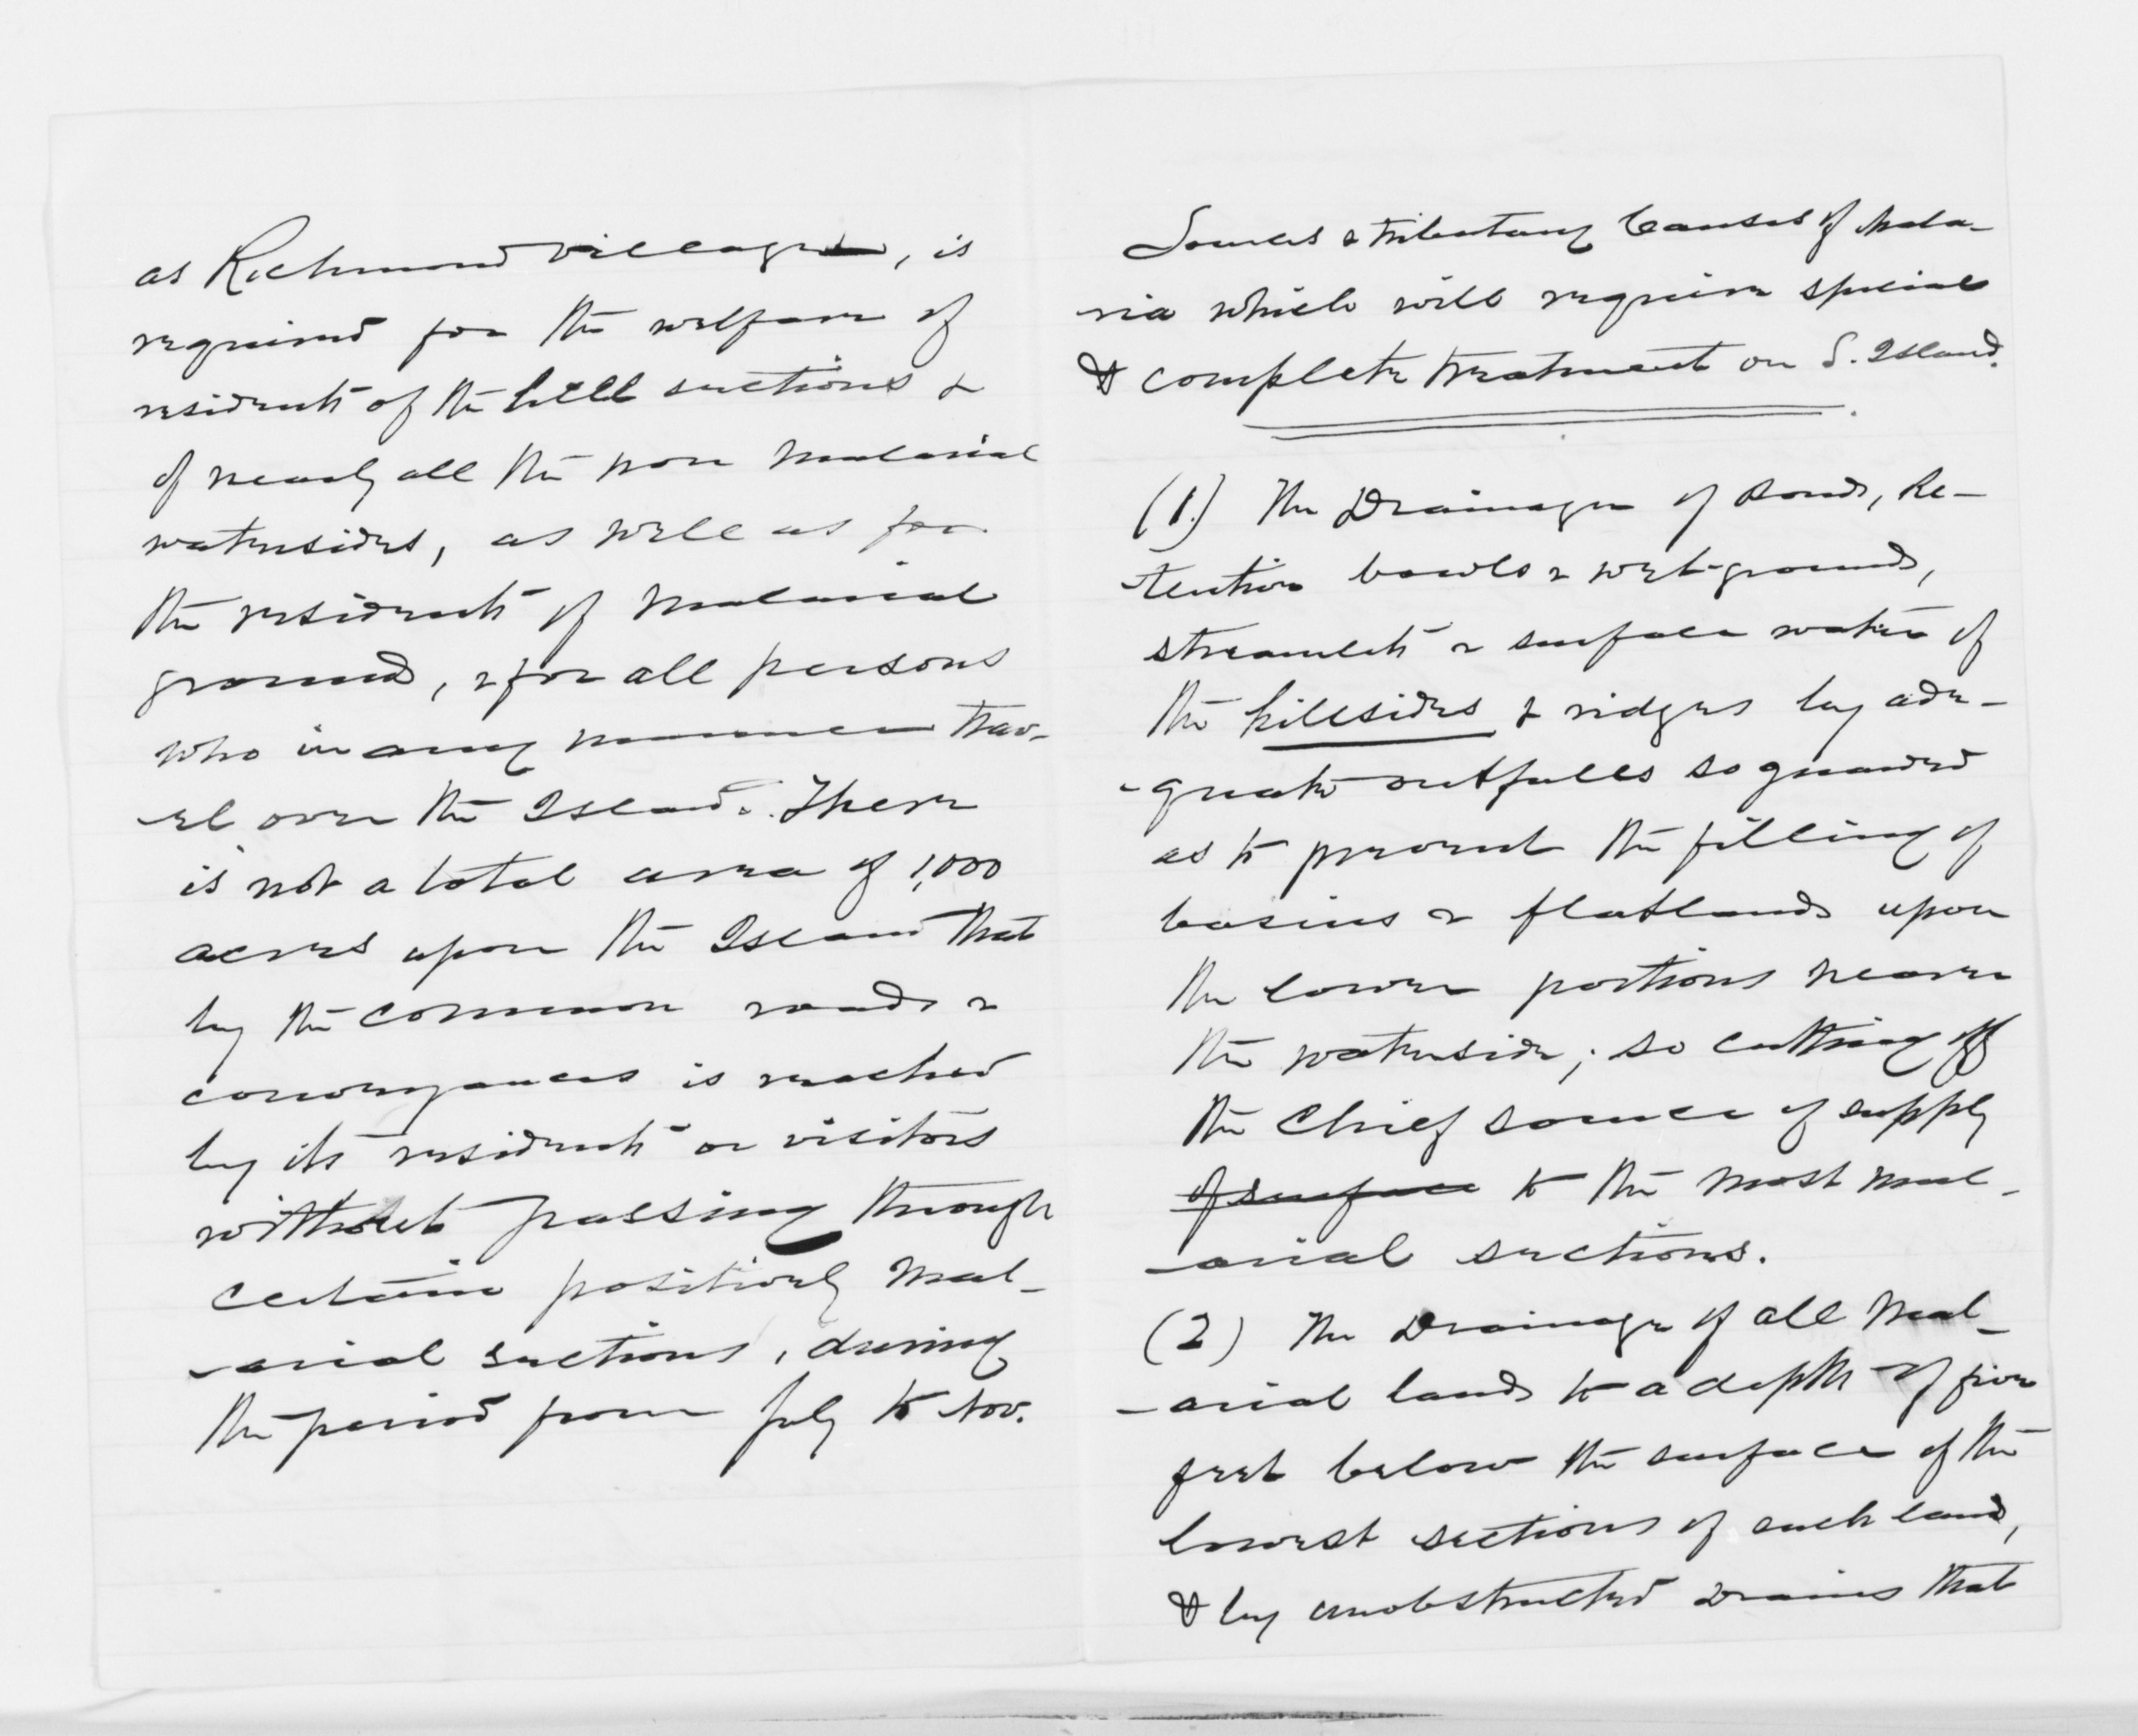 as Richmond village, is
required for the welfare of
residents of the hill sections &
of nearly all the non malarial
watersides, as well as for
the residents of malarial
ground, & for all persons
who in any manner trav-
-el over the Island. There
is not a total area of 1,000
acres upon the Island that
by the common roads &
conveyances is reached
by its residents or visitors
without passing through
certain positively mal-
-arial sections, during
the period from July to Nov.
Sources & tributary Causes of Mala-
ria which will require special
& complete treatment on S. Island.
(1.) The Drainage of Ponds, Re-
-tention bowls & wet-grounds,
streamlets & surface water of
the hillsides & ridges by ade-
-quate outfalls so guarded
as to prevent the filling of
basins & flatlands upon
the lower portions nearer
the waterside; so cutting off
the Chief source of supply
of surface to the most mal-
-arial sections.
(2) The Drainage of all Mal-
-arial lands to a depth of five
feet below the surface of the
lowest sections of such land,
& by unobstructed drains that